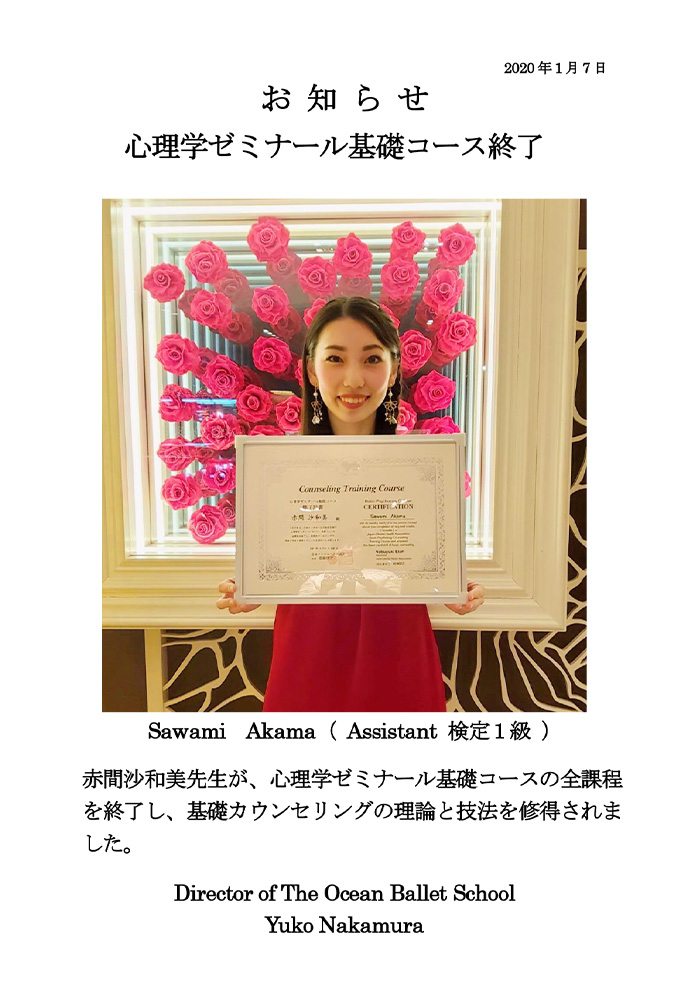 2020年1月7日
お知らせ
心理学ゼミナール基礎コース終了
Counseling Training Course
CERTIFICATION
赤間 沙和美
Sawami Akama
Sawami Akama ( Assistant 検定1級 )
赤間沙和美先生が、心理学ゼミナール基礎コースの全課程
を終了し、基礎カウンセリングの理論と技法を修得されま
した。
Director of The Ocean Ballet School
Yuko Nakamura